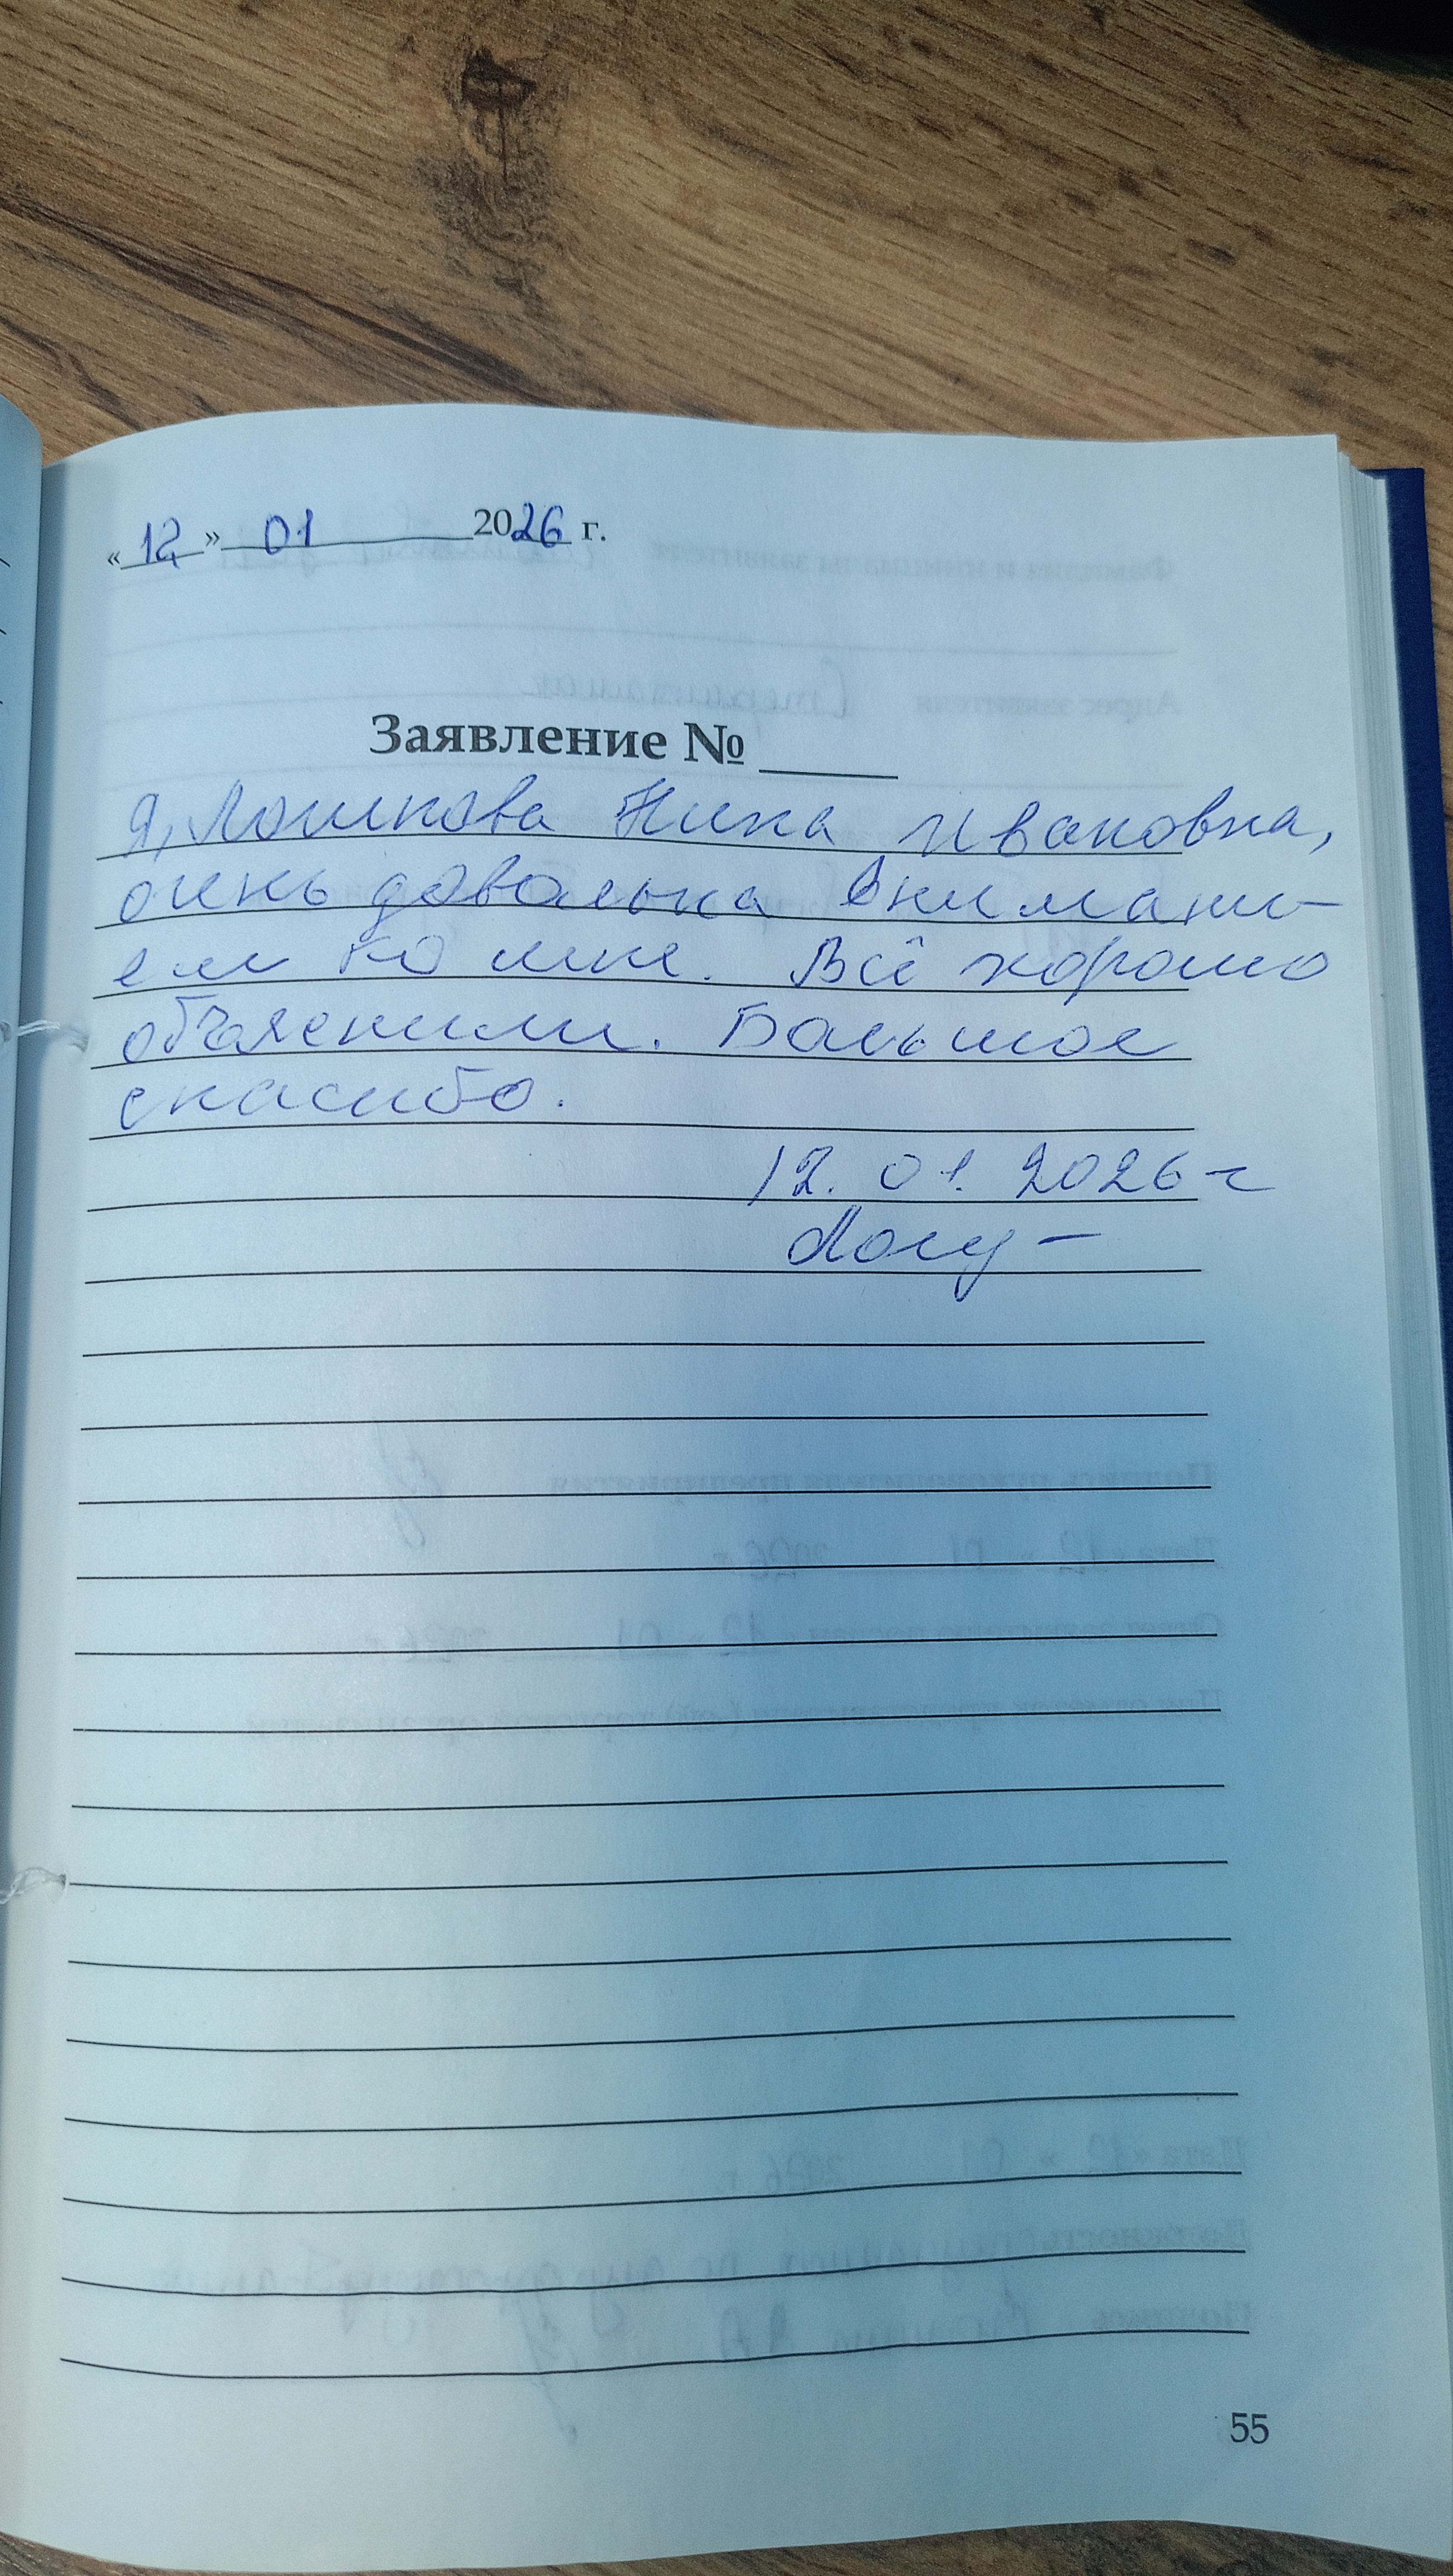 «12» 01 2026 г.
Заявление № ____
Я, Лошкова Нина Ивановна,
очень довольна внимани-
ем ко мне. Всё хорошо
объяснили. Большое
спасибо.
12. 01. 2026 г
55